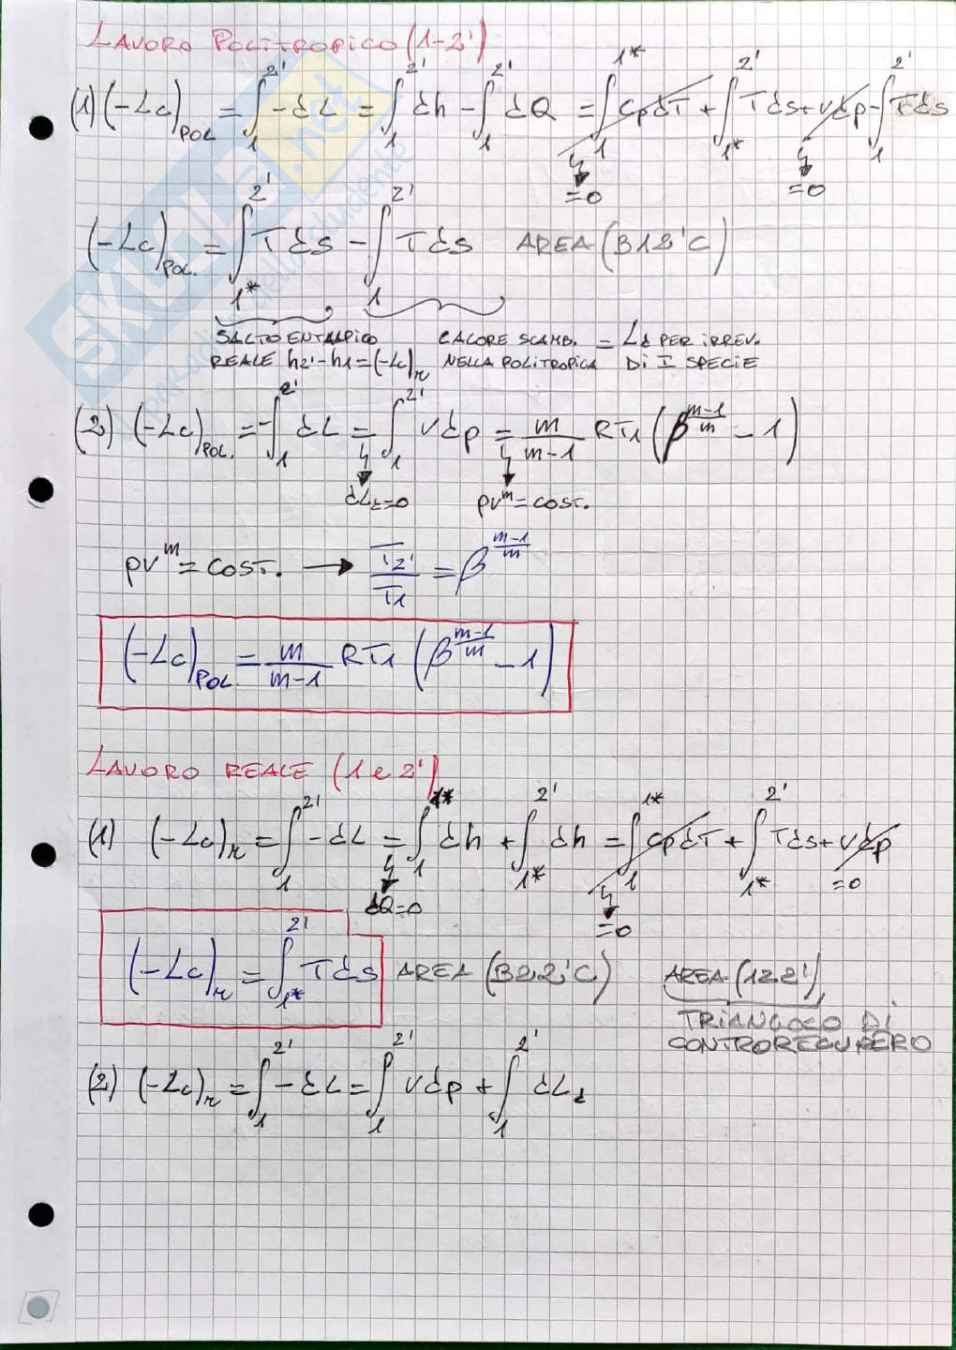 LAVORO POLITROPICO (1-2')
(1) (-Lc)POL = ∫₁^2' -dL = ∫₁^2' dh - ∫₁^2' dQ = ∫₁^1* cpdT + ∫₁*^2' Tds + vdp - ∫₁^2' Tds
=0 =0
(-Lc)POL. = ∫₁*^2' Tds - ∫₁^2' Tds AREA (B12'C)
SALTO ENTALPICO CALORE SCAMB. = Ld PER IRREV.
REALE h2'-h1=(-Lc)r NELLA POLITROPICA DI I SPECIE
(2) (-Lc)POL. = -∫₁^2' dL = ∫₁^2' vdp = m/(m-1) RT1 (β^((m-1)/m) - 1)
dLd=0 pv^m=COST.
pv^m = COST. → T2'/T1 = β^((m-1)/m)
(-Lc)POL. = m/(m-1) RT1 (β^((m-1)/m) - 1)
LAVORO REALE (1 e 2')
(1) (-Lc)r = ∫₁^2' -dL = ∫₁^1* dh + ∫₁*^2' dh = ∫₁^1* cpdT + ∫₁*^2' Tds + vdp
dQ=0 =0 =0
(-Lc)r = ∫₁*^2' Tds AREA (B22'C) AREA (122')
TRIANGOLO DI
CONTRORECUPERO
(2) (-Lc)r = ∫₁^2' -dL = ∫₁^2' vdp + ∫₁^2' dLd
SKUOLA.net